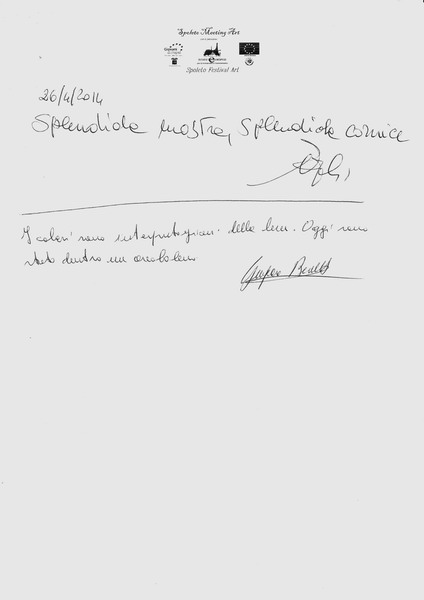 Spoleto Meeting Art
Spoleto Festival Art
26/4/2014
Splendida mostra, Splendida cornice
I colori sono interpretazioni della luce. Oggi sono
stato dentro un arcobaleno